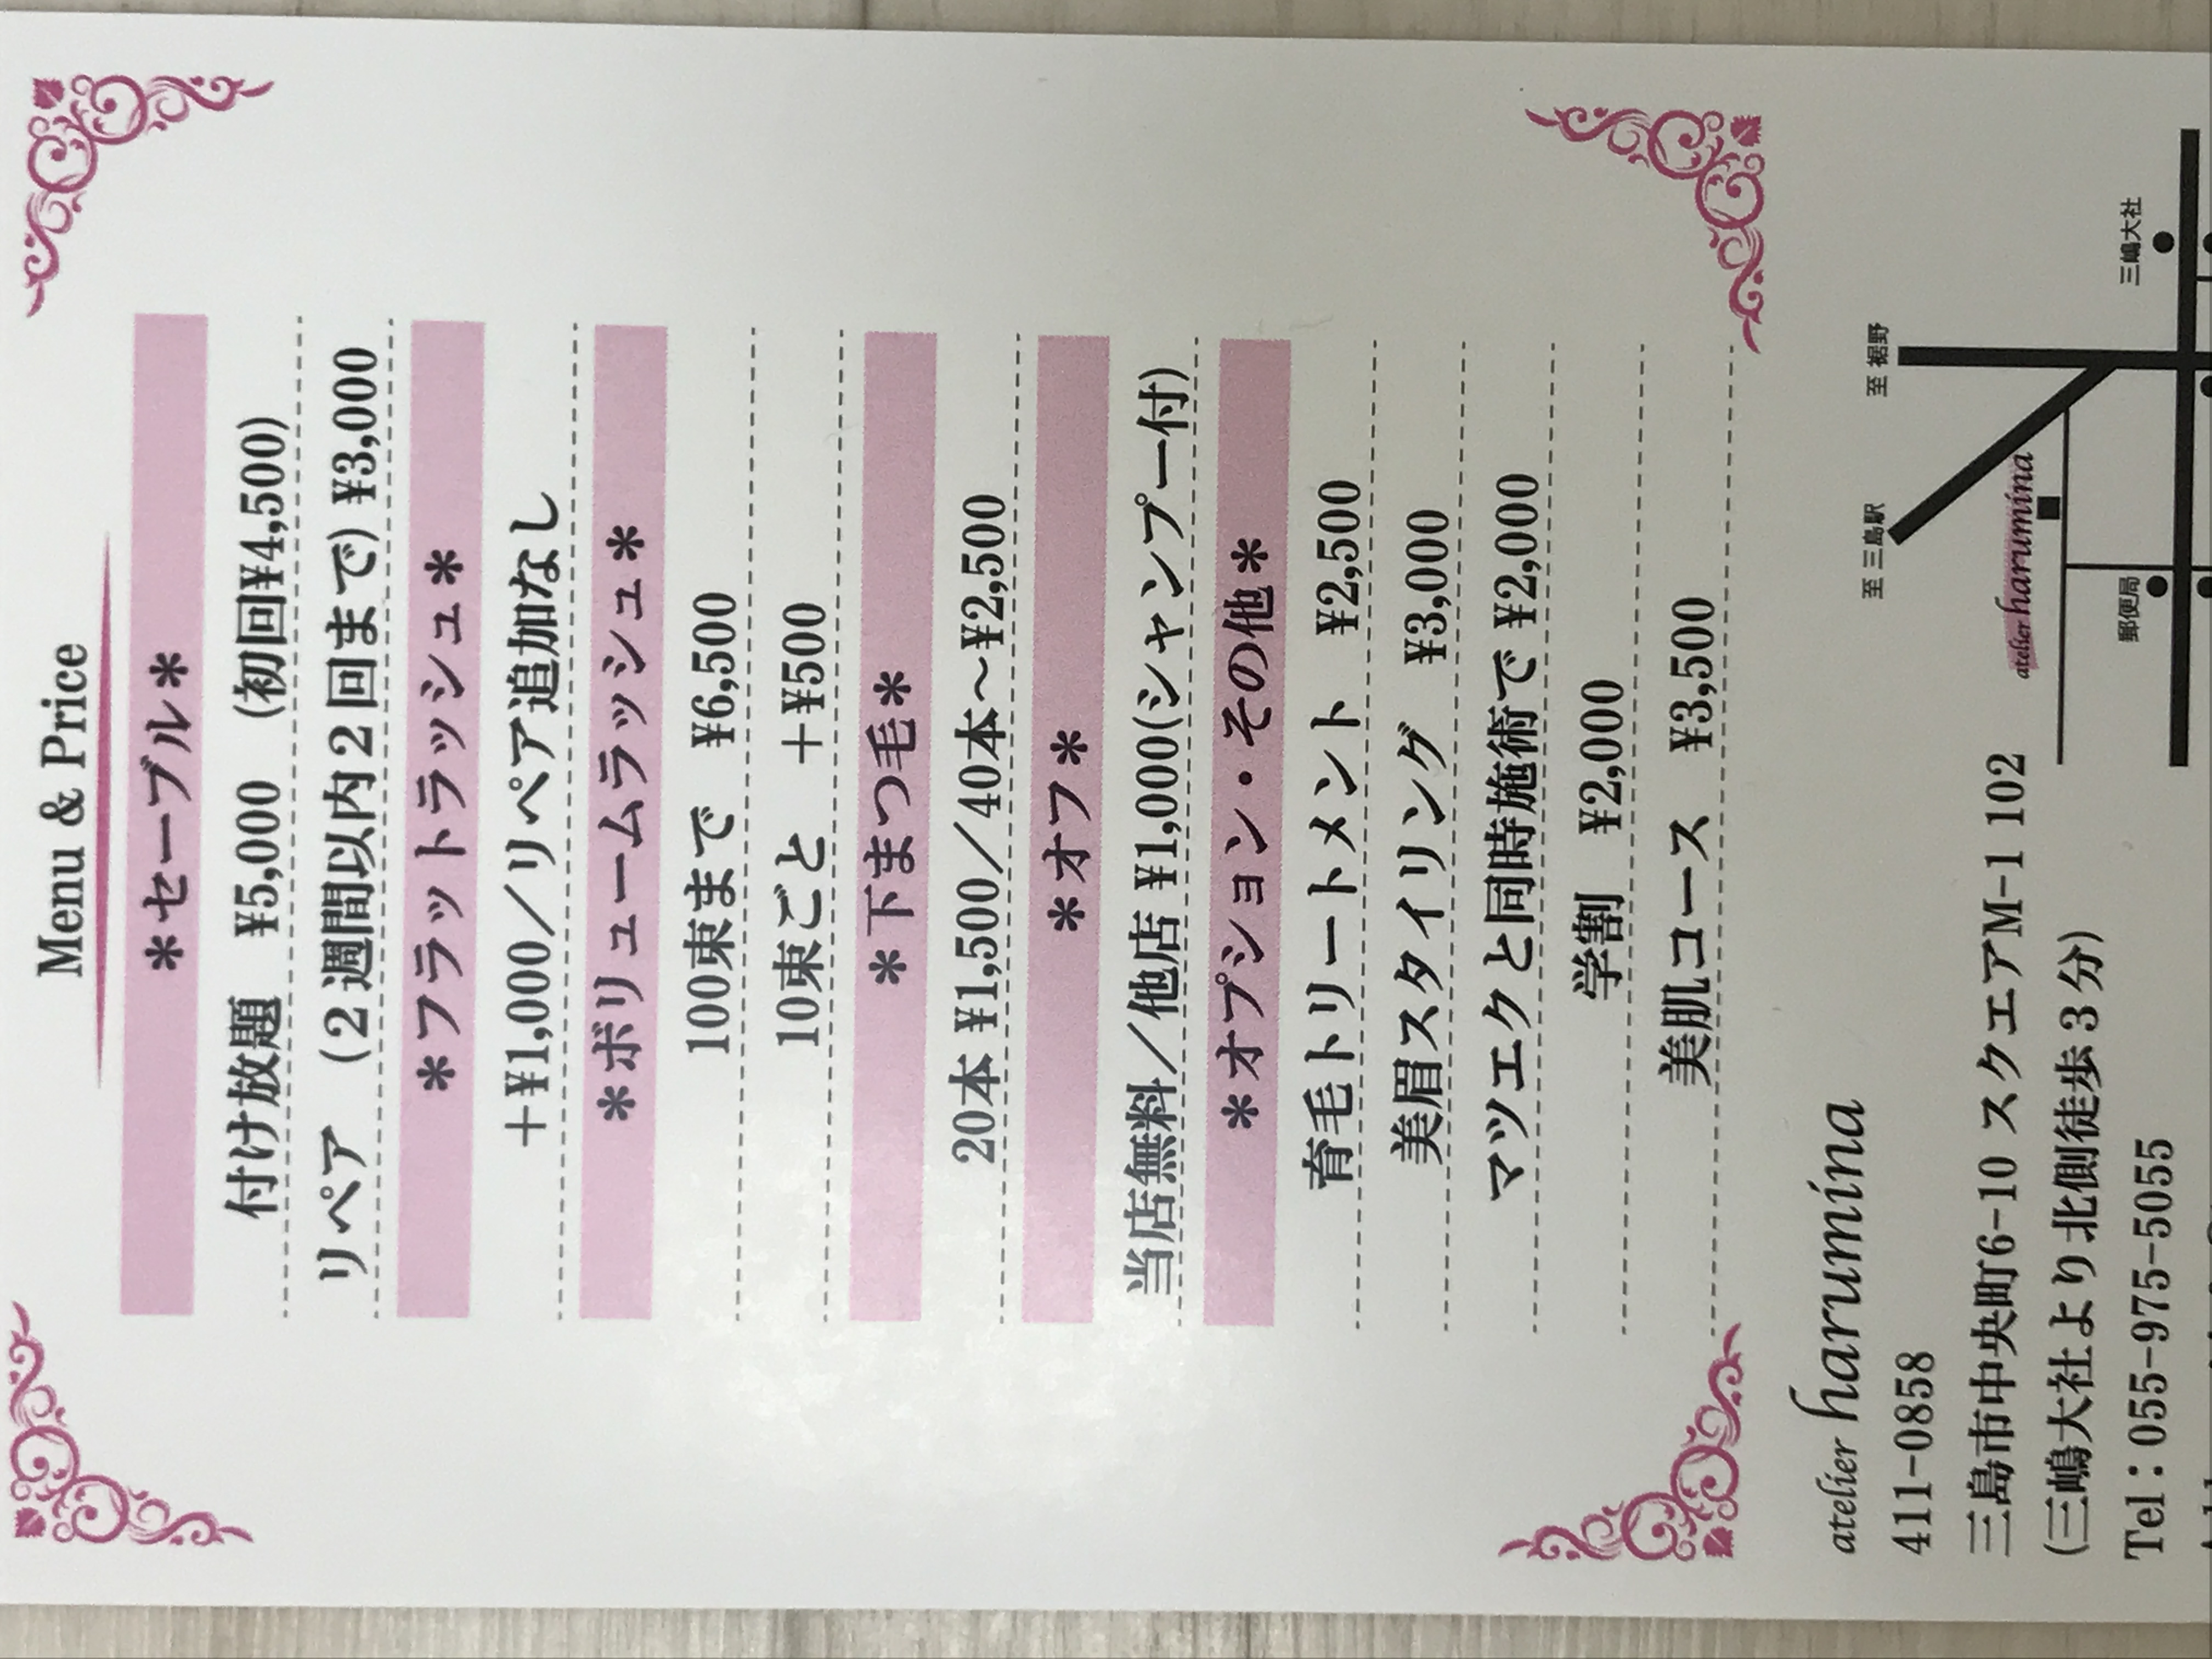 Menu & Price
*セーブル*
付け放題 ¥5,000 (初回¥4,500)
リペア (2週間以内2回まで) ¥3,000
*フラットラッシュ*
+¥1,000/リペア追加なし
*ボリュームラッシュ*
100束まで ¥6,500
10束ごと +¥500
*下まつ毛*
20本 ¥1,500/40本~¥2,500
*オフ*
当店無料/他店 ¥1,000(シャンプー付)
*オプション・その他*
育毛トリートメント ¥2,500
美眉スタイリング ¥3,000
マツエクと同時施術で ¥2,000
学割 ¥2,000
美肌コース ¥3,500
atelier harumina
411-0858
三島市中央町6-10 スクエアM-1 102
(三嶋大社より北側徒歩3分)
Tel:055-975-5055
至 三島駅
至 裾野
atelier harumina
郵便局
三嶋大社